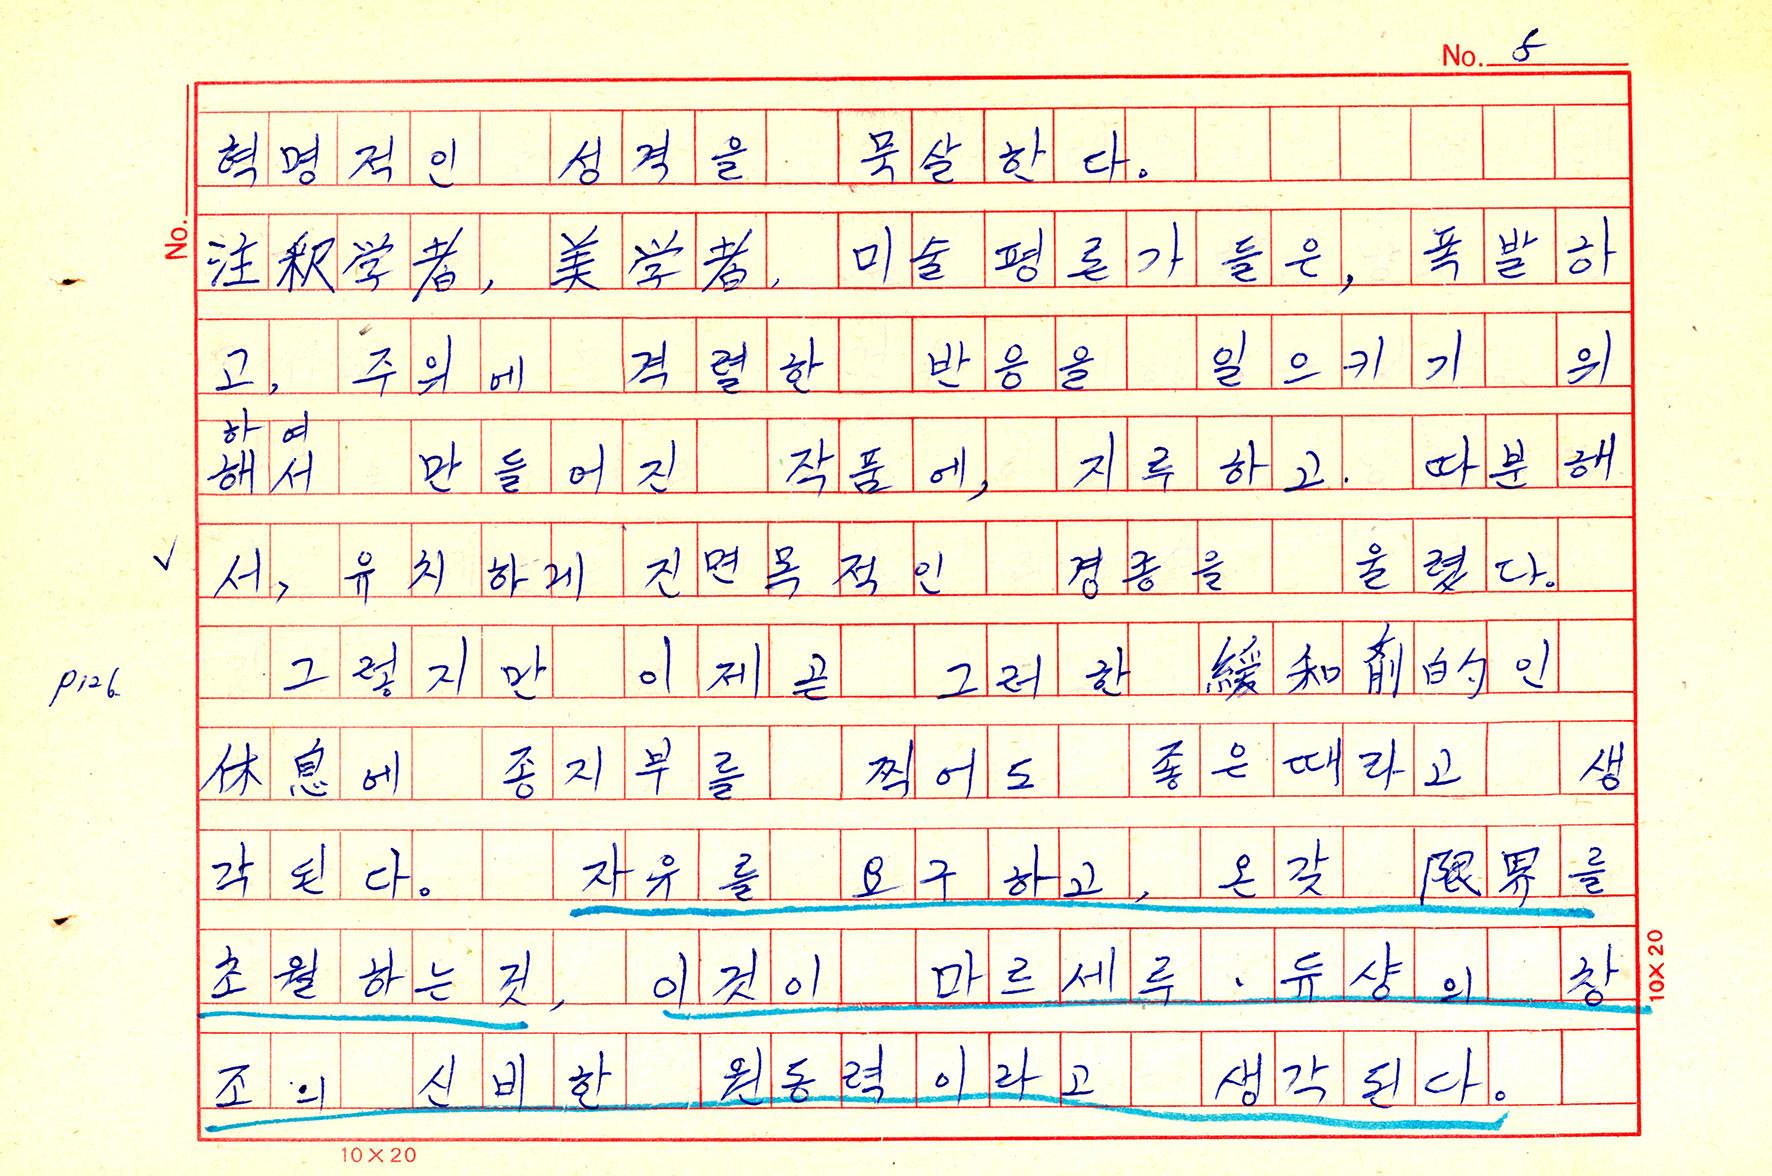 No. 5
혁명적인 성격을 묵살한다.
No.
注釈学者, 美学者, 미술평론가들은, 폭발하
고, 주위에 격렬한 반응을 일으키기 위
하여
해서 만들어진 작품에, 지루하고. 따분해
✓ 서, 유치하게 진면목적인 경종을 울렸다.
P126 그렇지만 이제곧 그러한 緩和剤的인
休息에 종지부를 찍어도 좋은때라고 생
각된다. 자유를 요구하고, 온갖 限界를
초월하는 것, 이것이 마르세루·듀샹의 창
10×20
조의 신비한 원동력이라고 생각된다.
10×20